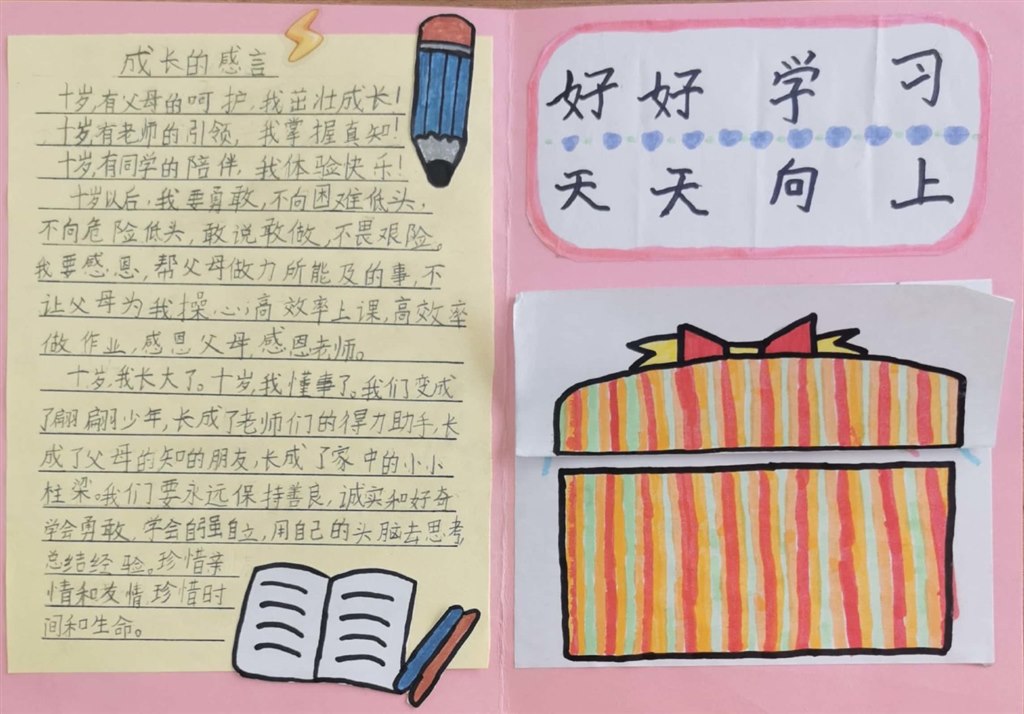 成长的感言
十岁,有父母的呵护,我茁壮成长!
十岁,有老师的引领,我掌握真知!
十岁,有同学的陪伴,我体验快乐!
十岁以后,我要勇敢,不向困难低头,
不向危险低头,敢说敢做,不畏艰险。
我要感恩,帮父母做力所能及的事,不
让父母为我操心;高效率上课,高效率
做作业,感恩父母,感恩老师。
十岁,我长大了。十岁,我懂事了。我们变成
了翩翩少年,长成了老师们的得力助手,长
成了父母的知的朋友,长成了家中的小小
柱梁。我们要永远保持善良,诚实和好奇
学会勇敢,学会自强自立,用自己的头脑去思考,
总结经验。珍惜亲
情和友情,珍惜时
间和生命。
好好学习
天天向上